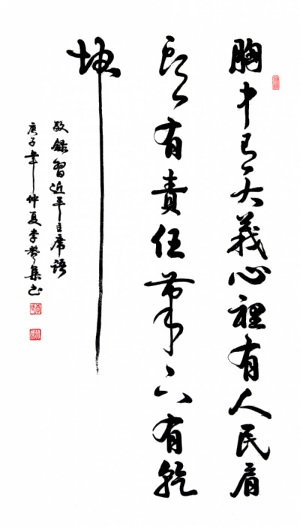 胸中有大義心裡有人民肩
頭有責任筆下有乾
坤
敬錄習近平主席語
庚子年仲夏李